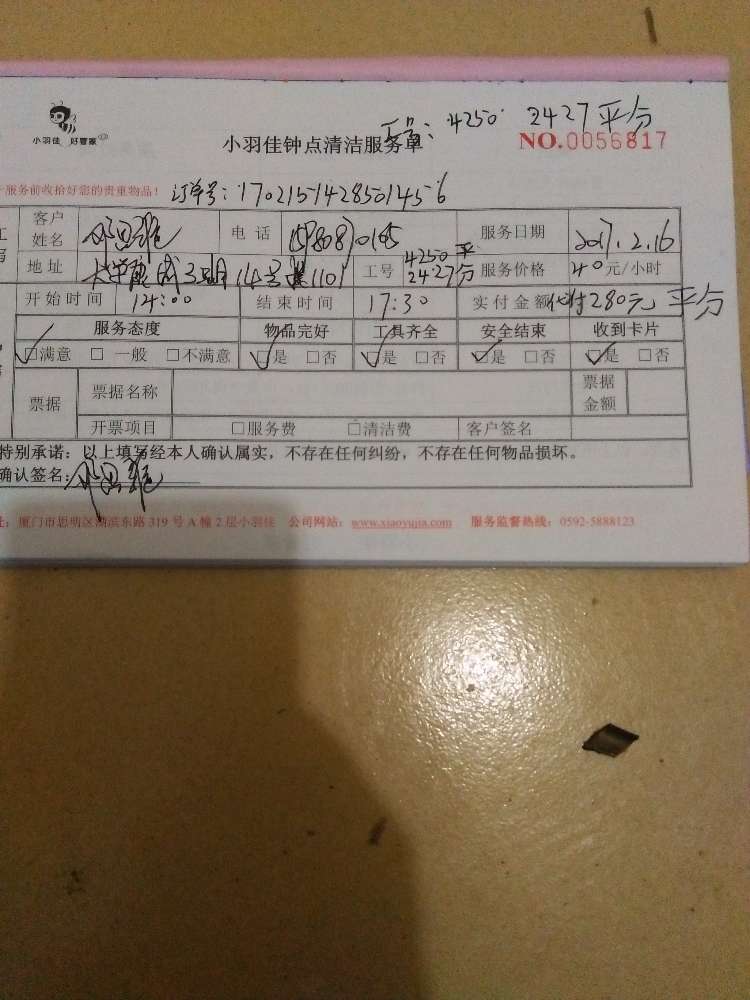 工号：4250 2427 平分
小羽佳 好管家
小羽佳钟点清洁服务单 NO.0056817
服务前收拾好您的贵重物品！ 订单号：17021514285014556
客户姓名 电话 服务日期 2017.2.16
地址 14号 1101 工号 4250 2427 平分 服务价格 40元/小时
开始时间 14:00 结束时间 17:30 实付金额 代付280元 平分
服务态度 物品完好 工具齐全 安全结束 收到卡片
☑满意 □一般 □不满意 ☑是 □否 ☑是 □否 ☑是 □否 ☑是 □否
票据 票据名称 票据金额
开票项目 □服务费 □清洁费 客户签名
特别承诺：以上填写经本人确认属实，不存在任何纠纷，不存在任何物品损坏。
确认签名：
址：厦门市思明区湖滨东路319号A幢2层小羽佳 公司网站：www.xiaoyujia.com 服务监督热线：0592-5888123